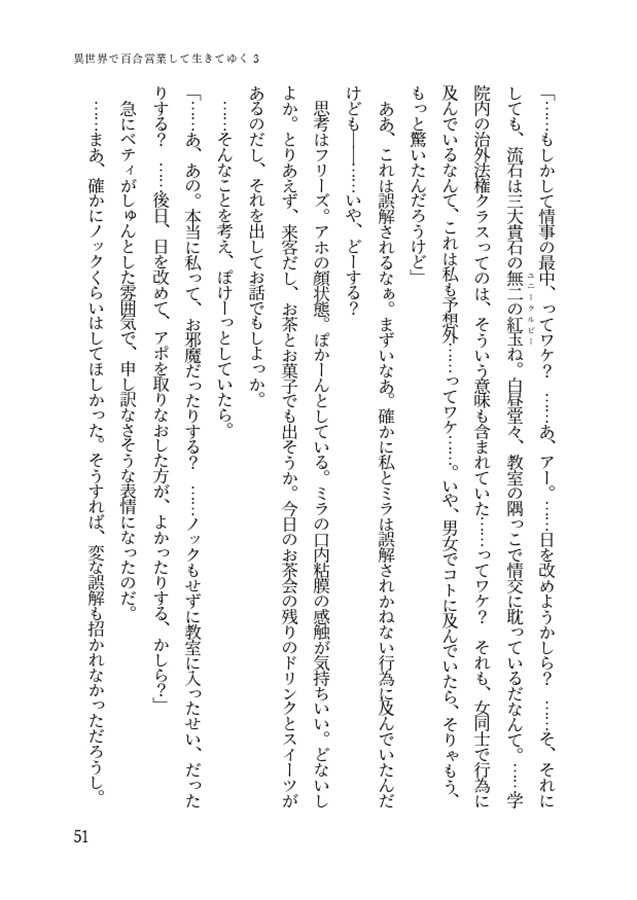 異世界で百合営業して生きてゆく 3
「……もしかして情事の最中、ってワケ？　……あ、アー。……日を改めようかしら？　……そ、それに
しても、流石は三大貴石の無二の紅玉ね。白昼堂々、教室の隅っこで情交に耽っているだなんて。……学
ユニークルビー
院内の治外法権クラスってのは、そういう意味も含まれていた……ってワケ？　それも、女同士で行為に
及んでいるなんて、これは私も予想外……ってワケ……。いや、男女でコトに及んでいたら、そりゃもう、
もっと驚いたんだろうけど」
　ああ、これは誤解されるなぁ。まずいなあ。確かに私とミラは誤解されかねない行為に及んでいたんだ
けども――……いや、どーする？
　思考はフリーズ。アホの顔状態。ぽかーんとしている。ミラの口内粘膜の感触が気持ちいい。どないし
よか。とりあえず、来客だし、お茶とお菓子でも出そうか。今日のお茶会の残りのドリンクとスイーツが
あるのだし、それを出してお話でもしよっか。
　……そんなことを考え、ぽけーっとしていたら。
「……あ、あの。本当に私って、お邪魔だったりする？　……ノックもせずに教室に入ったせい、だった
りする？　……後日、日を改めて、アポを取りなおした方が、よかったりする、かしら？」
　急にベティがしゅんとした雰囲気で、申し訳なさそうな表情になったのだ。
　……まあ、確かにノックくらいはしてほしかった。そうすれば、変な誤解も招かれなかっただろうし。
51